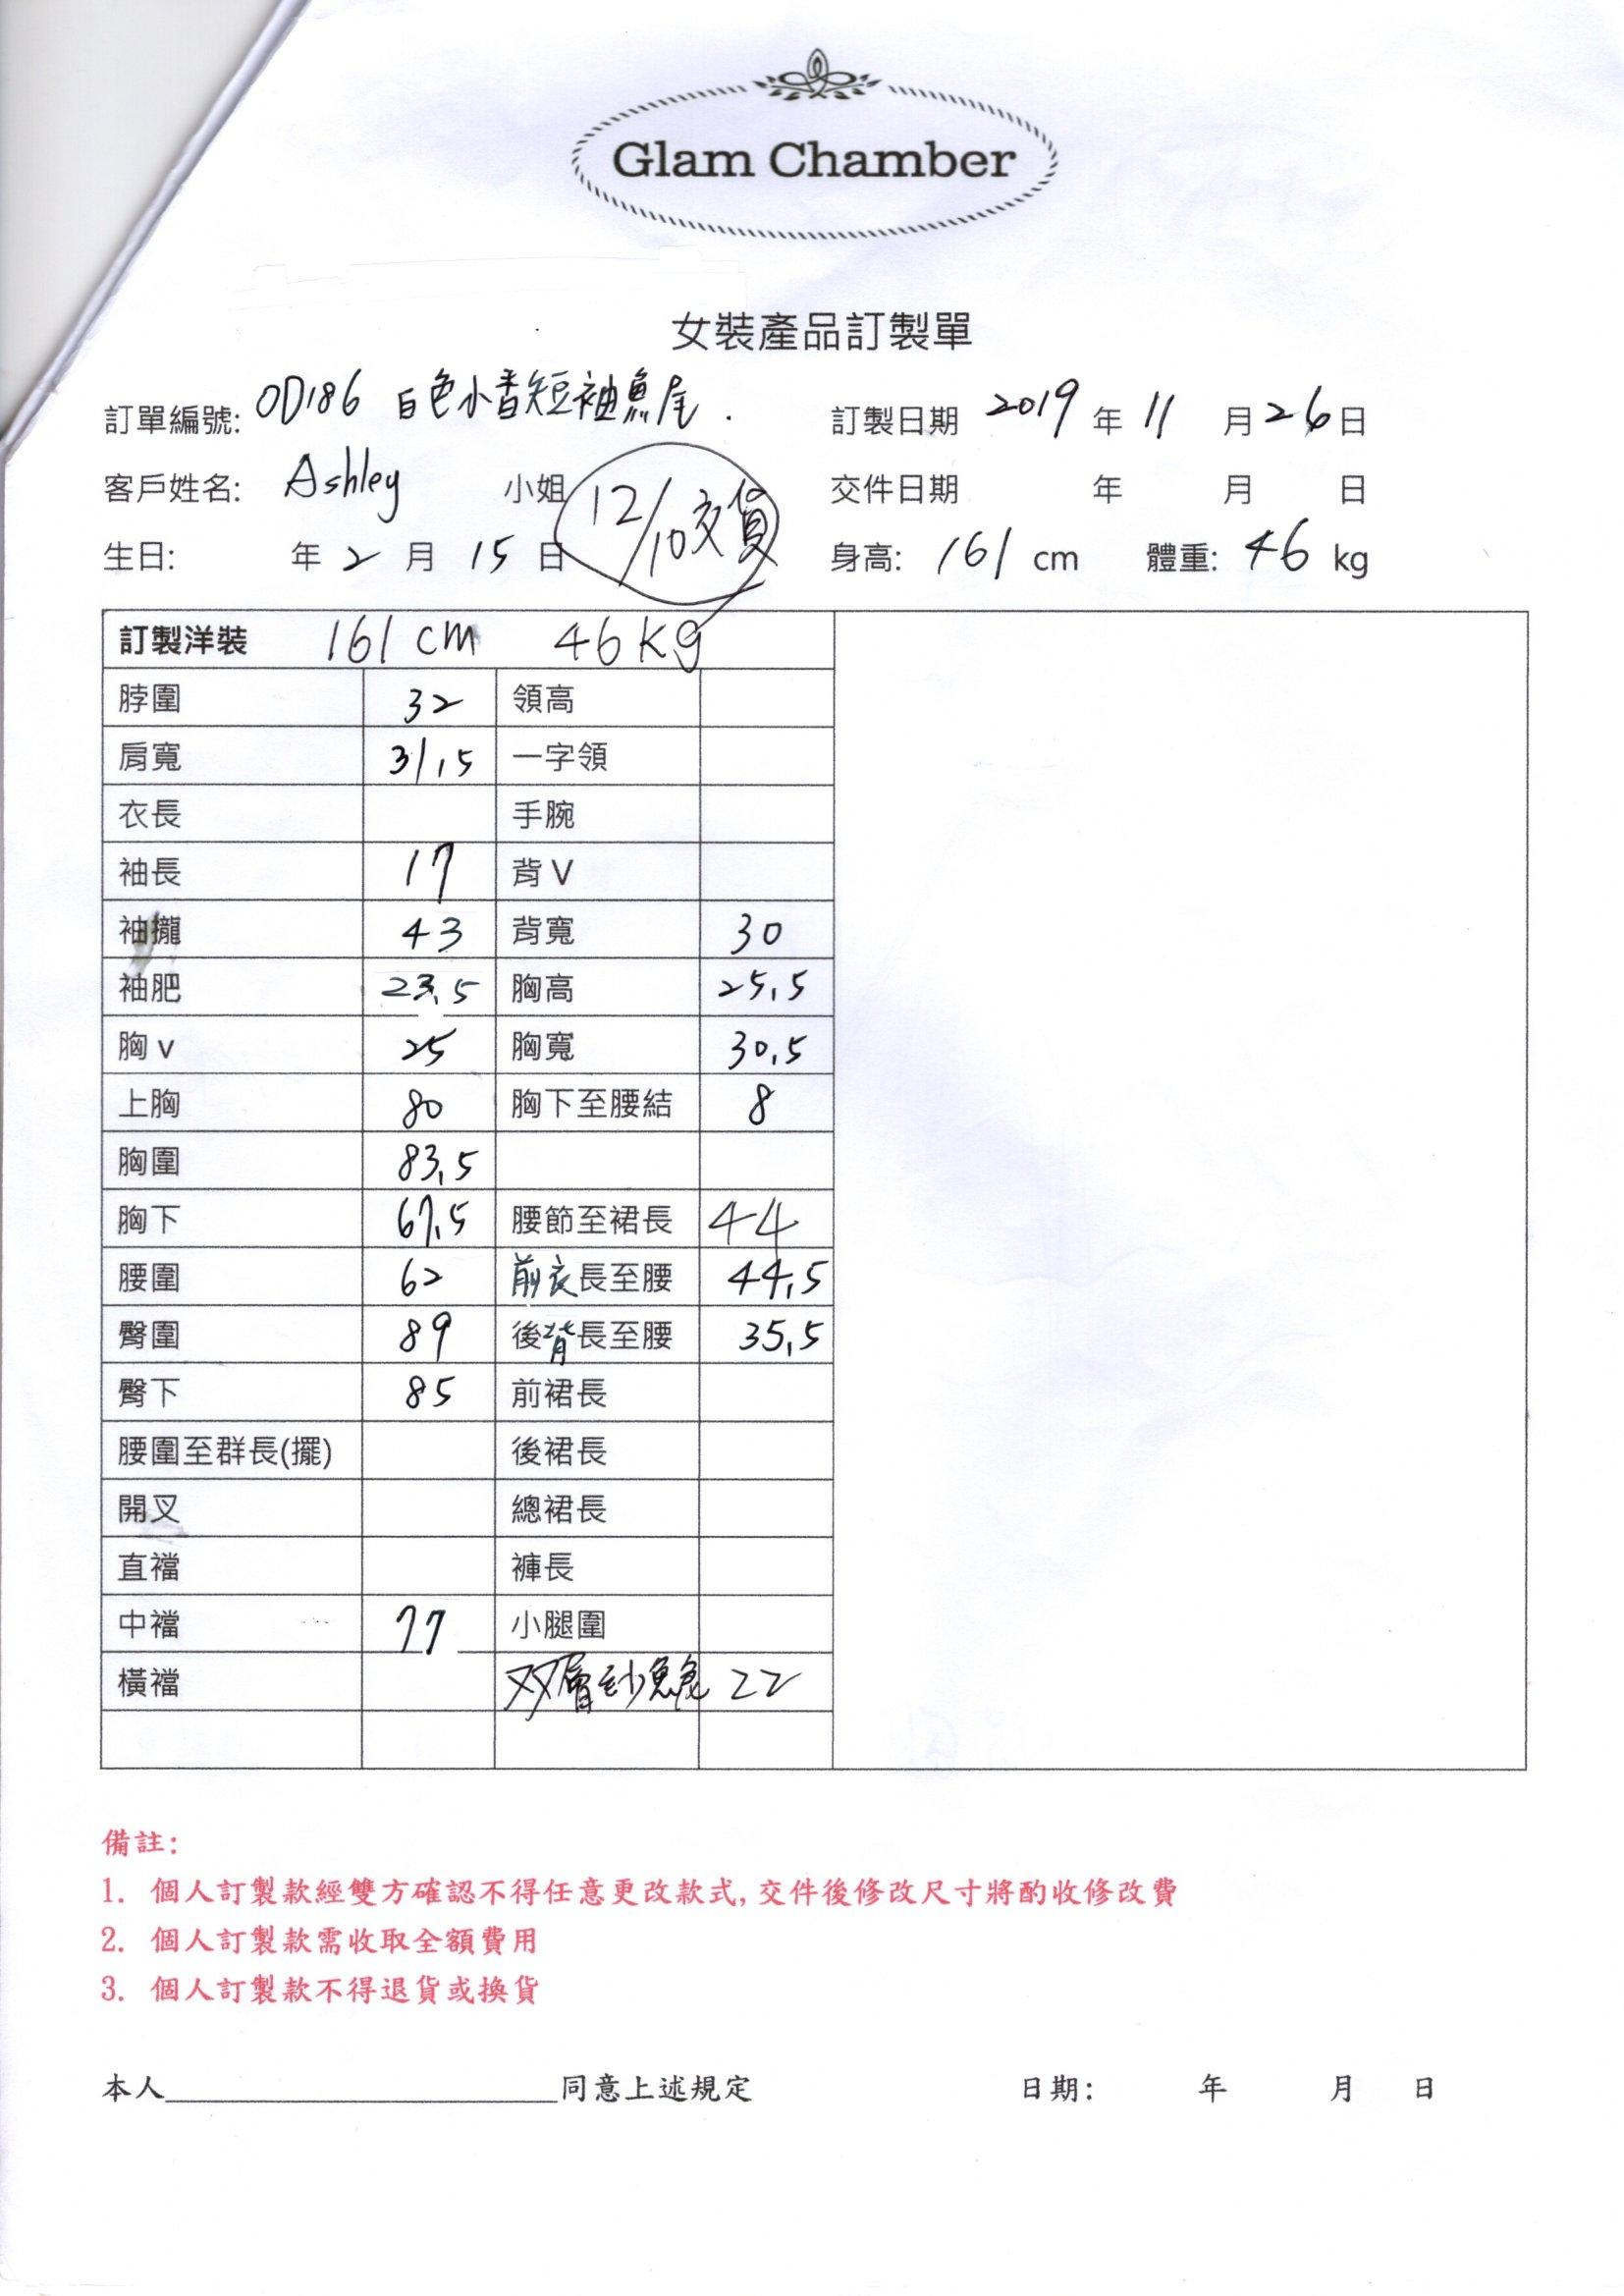 Glam Chamber
女裝產品訂製單
訂單編號: OD186 白色小香短袖魚尾. 訂製日期 2019 年 11 月 26 日
客戶姓名: Ashley 小姐 12/10交貨 交件日期 年 月 日
生日: 年 2 月 15 日 身高: 161 cm 體重: 46 kg
訂製洋裝 161 cm 46 kg
脖圍 32 領高
肩寬 31.5 一字領
衣長 手腕
袖長 17 背 V
袖攏 43 背寬 30
袖肥 23.5 胸高 25.5
胸 v 25 胸寬 30.5
上胸 80 胸下至腰結 8
胸圍 83.5
胸下 67.5 腰節至裙長 44
腰圍 62 前衣長至腰 44.5
臀圍 89 後背長至腰 35.5
臀下 85 前裙長
腰圍至群長(擺) 後裙長
開叉 總裙長
直襠 褲長
中襠 77 小腿圍
橫襠 22
備註:
1. 個人訂製款經雙方確認不得任意更改款式, 交件後修改尺寸將酌收修改費
2. 個人訂製款需收取全額費用
3. 個人訂製款不得退貨或換貨
本人 同意上述規定 日期: 年 月 日